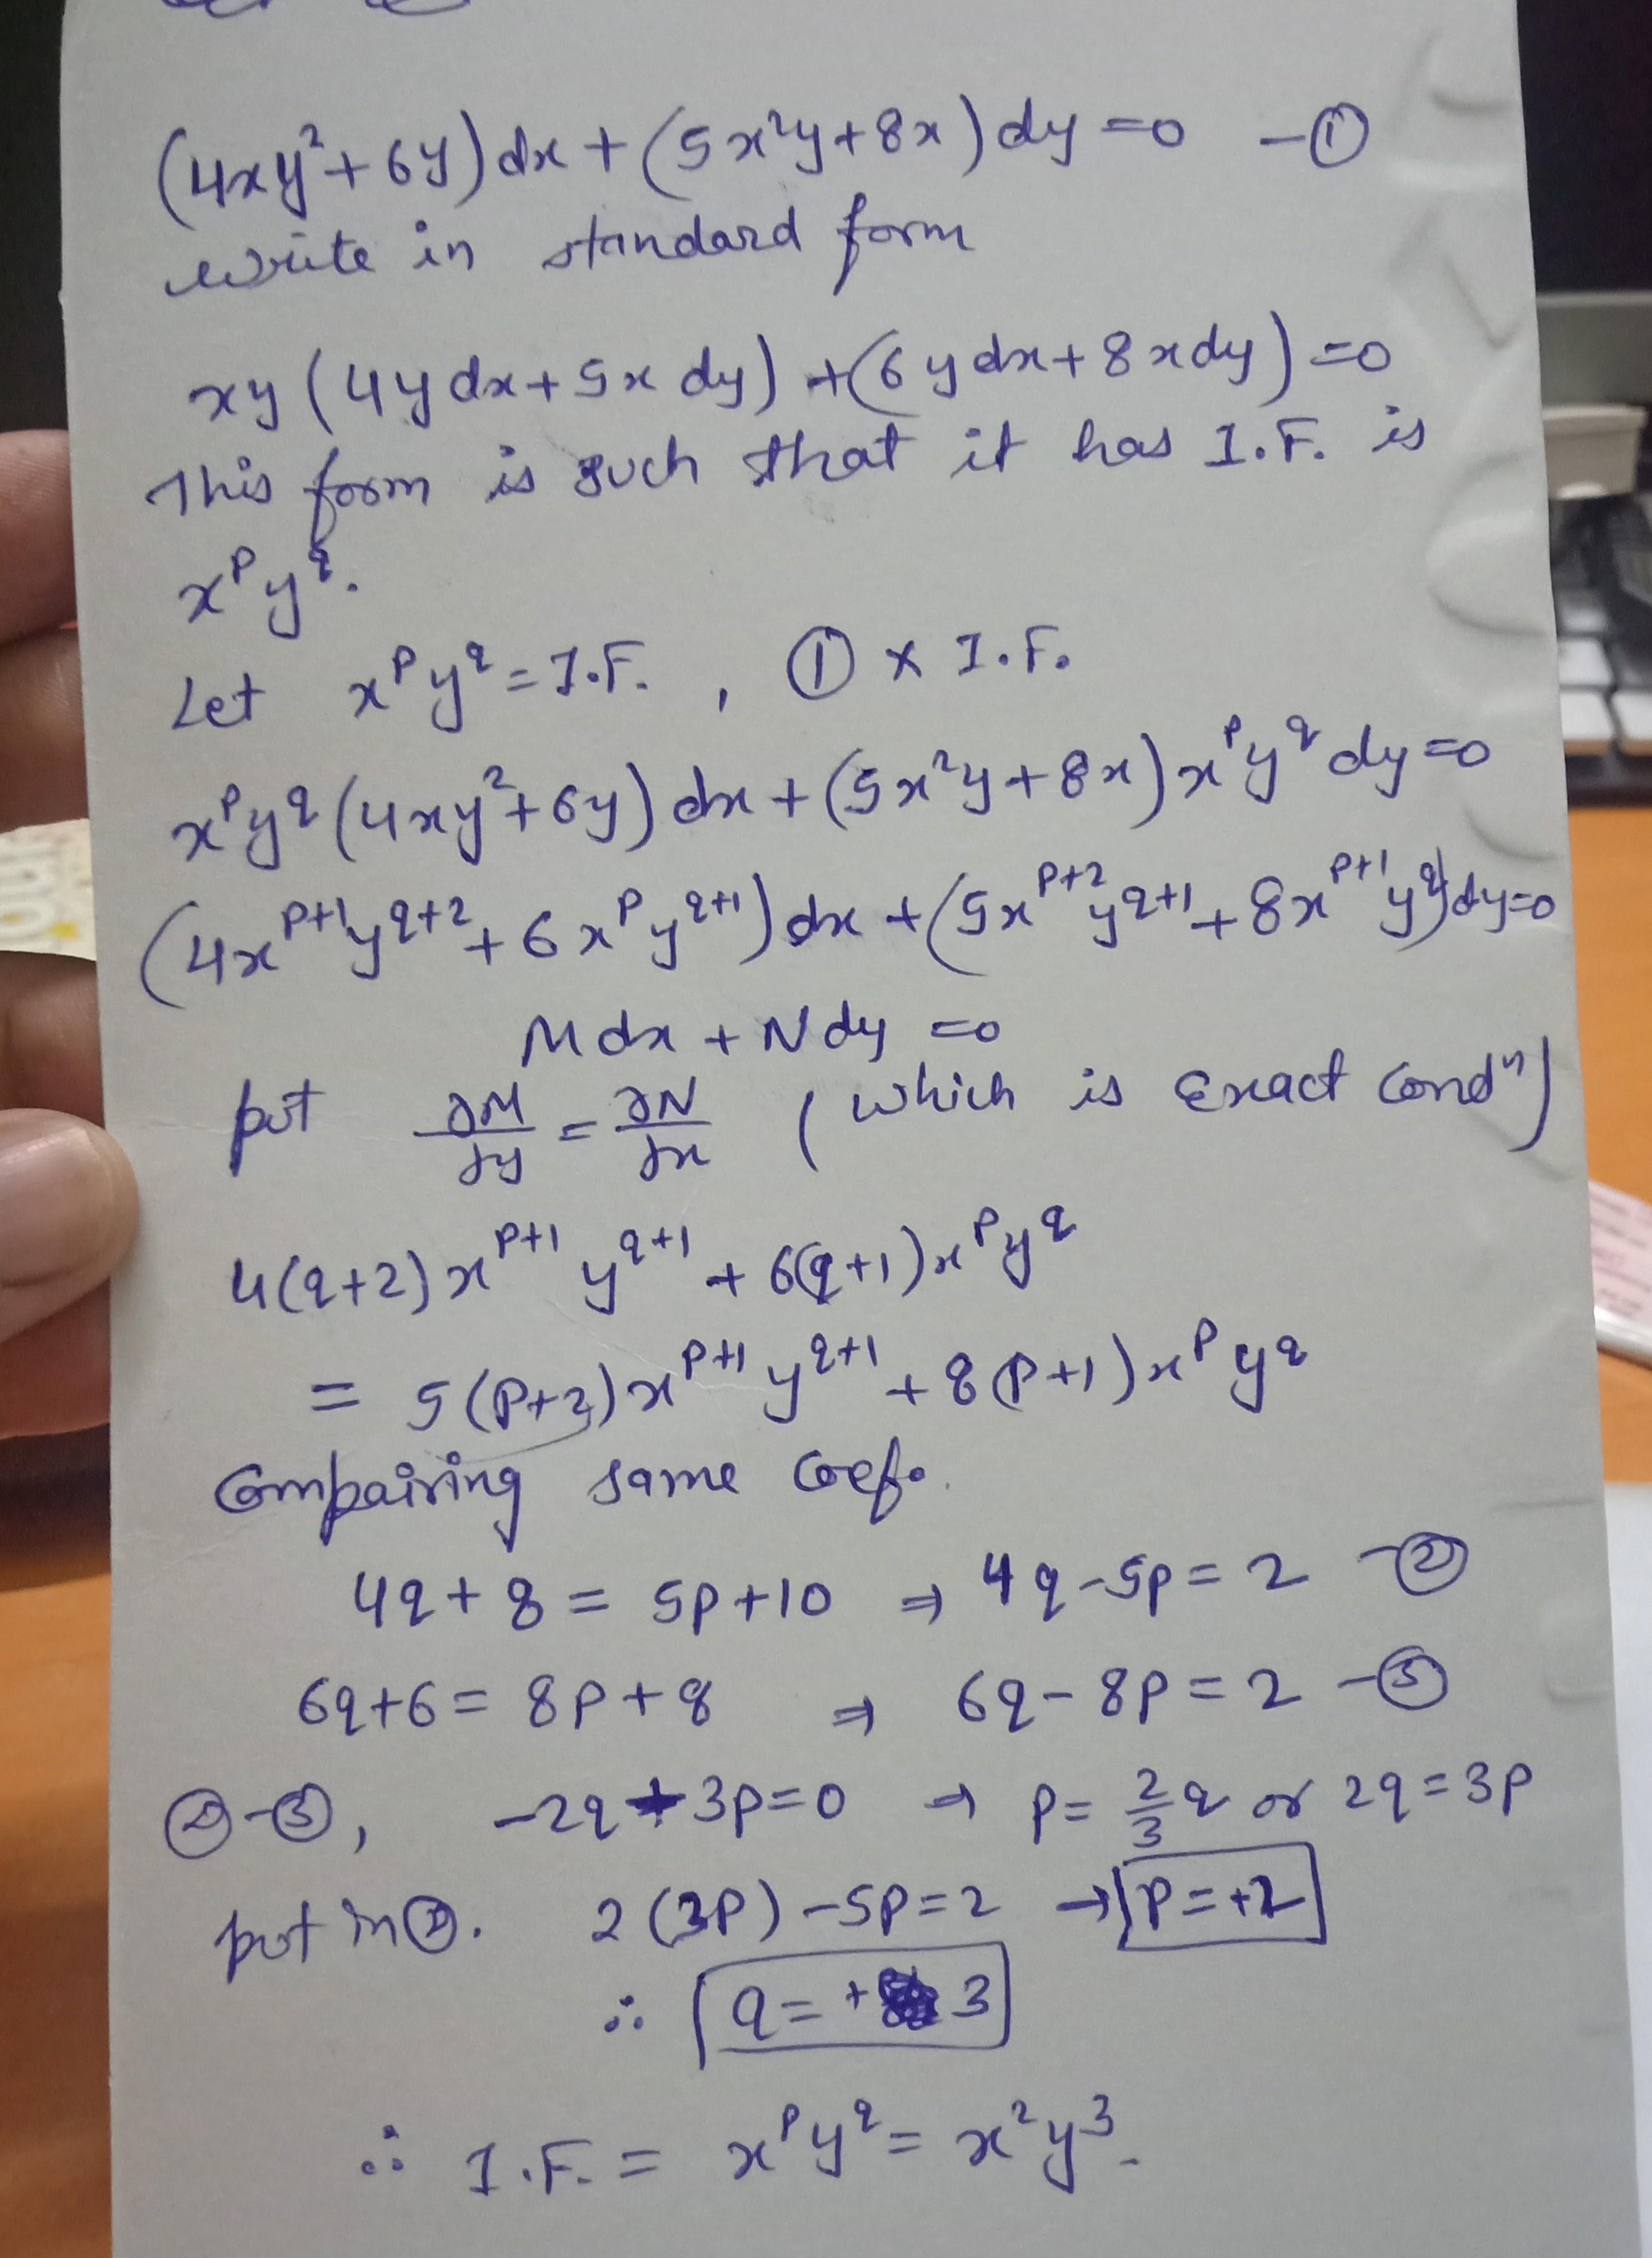 (4xy²+6y)dx+(5x²y+8x)dy=0 -①
write in standard form
xy(4ydx+5xdy)+(6ydx+8xdy)=0
This form is such that it has I.F. is
x^p y^q.
Let x^p y^q = I.F. , ① × I.F.
x^p y^q (4xy²+6y)dx+(5x²y+8x)x^p y^q dy=0
(4x^{p+1}y^{q+2}+6x^p y^{q+1})dx+(5x^{p+2}y^{q+1}+8x^{p+1}y^q)dy=0
Mdx+Ndy=0
put ∂M/∂y = ∂N/∂x (which is Exact Condⁿ)
4(q+2)x^{p+1}y^{q+1}+6(q+1)x^p y^q
= 5(p+2)x^{p+1}y^{q+1}+8(p+1)x^p y^q
Compairing same coef.
4q+8=5p+10 ⇒ 4q-5p=2 -②
6q+6=8p+8 ⇒ 6q-8p=2 -③
②-③, -2q+3p=0 → p=2/3 q or 2q=3p
put in②. 2(3p)-5p=2 → p=+2
∴ q=+3
∴ I.F. = x^p y^q = x²y³.